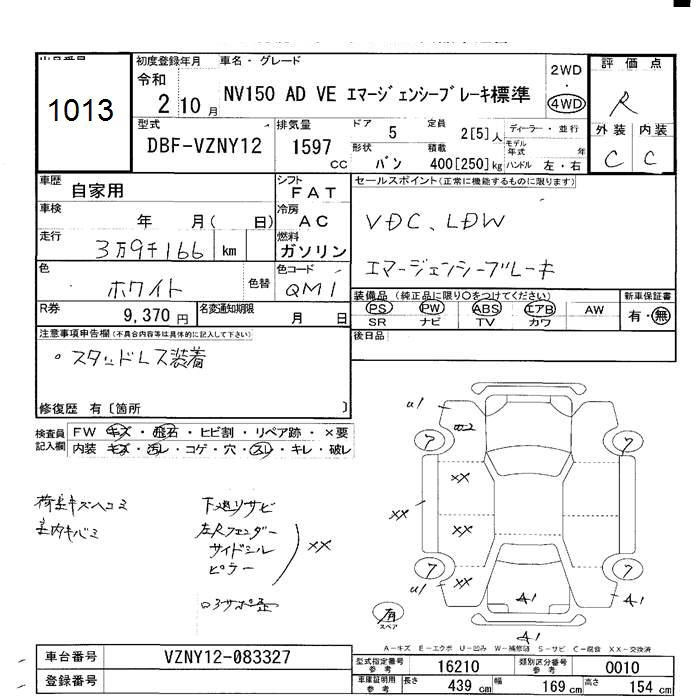 1013
初度登録年月
令和
2年10月
車名・グレード
NV150 AD VE エマージェンシーブレーキ標準
2WD
・
4WD
評価点
R
外装 内装
C C
型式
DBF-VZNY12
排気量
1597 CC
ドア 5
定員 2[5]人
ディーラー・並行
形状 バン
積載 400[250]kg
モデル年式 年
ハンドル 左・右
車歴 自家用
シフト FAT
車検 年 月( 日)
冷房 AC
走行 3万9千166 km
燃料 ガソリン
色 ホワイト 色替
色コード QM1
R券 9,370円
名変通知期限 月 日
セールスポイント(正常に機能するものに限ります)
VDC、LDW
エマージェンシーブレーキ
装備品 (純正品に限り○をつけてください)
PS PW ABS エアB AW
SR ナビ TV カワ
新車保証書
有・無
後日品
注意事項申告欄(不具合内容等は具体的に記入して下さい)
・スタッドレス装着
修復歴 有〔箇所 〕
検査員記入欄
FW キズ・飛石・ヒビ割・リペア跡・×要
内装 キズ・汚レ・コゲ・穴・スレ・キレ・破レ
下廻りサビ
左Rフェンダー
サイドシル
ピラー
XX
U1
U2
7
7
XX
XX
XX
XX
U1
7
7
A1
A1
A1
有
スペア
A-キズ E-エクボ U-凹み W-補修跡 S-サビ C-腐食 XX-交換済
車台番号 VZNY12-083327
登録番号
型式指定番号 参考 16210
類別区分番号 参考 0010
車庫証明用 参考 長さ 439 cm 幅 169 cm 高さ 154 cm